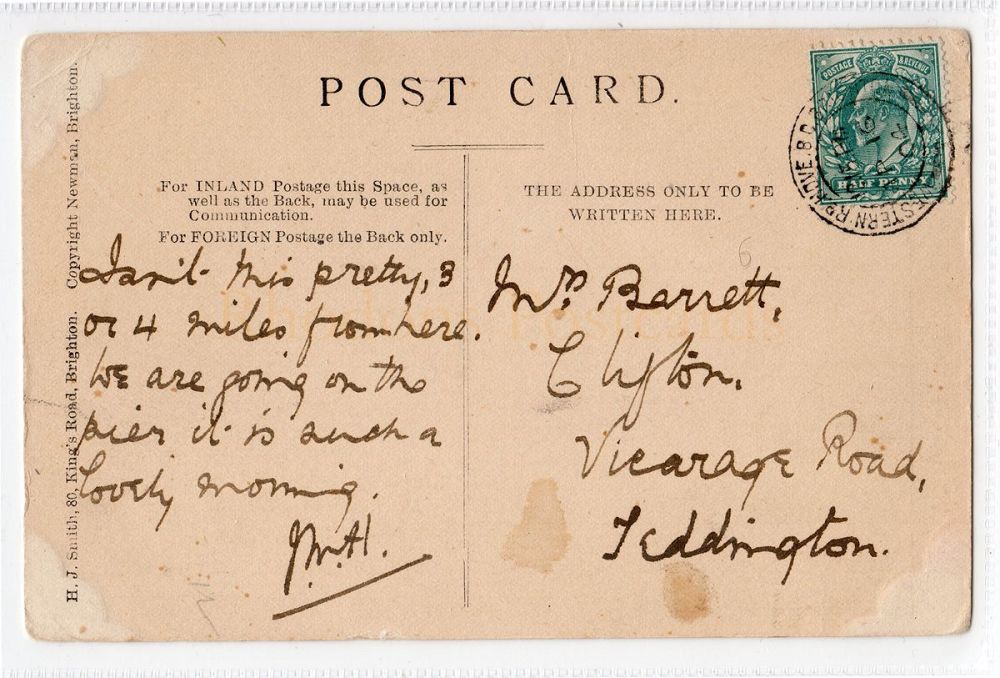 POST CARD.
For INLAND Postage this Space, as
well as the Back, may be used for
Communication.
For FOREIGN Postage the Back only.
THE ADDRESS ONLY TO BE
WRITTEN HERE.
POSTAGE & REVENUE
HALF PENNY
WESTERN RD HOVE. B.O.
Isn't this pretty, 3
or 4 miles from here.
We are going on the
pier it is such a
lovely morning.
Mrs Barrett,
Clifton,
Vicarage Road,
Teddington.
H. J. Smith, 80, King's Road, Brighton. Copyright Newman, Brighton.